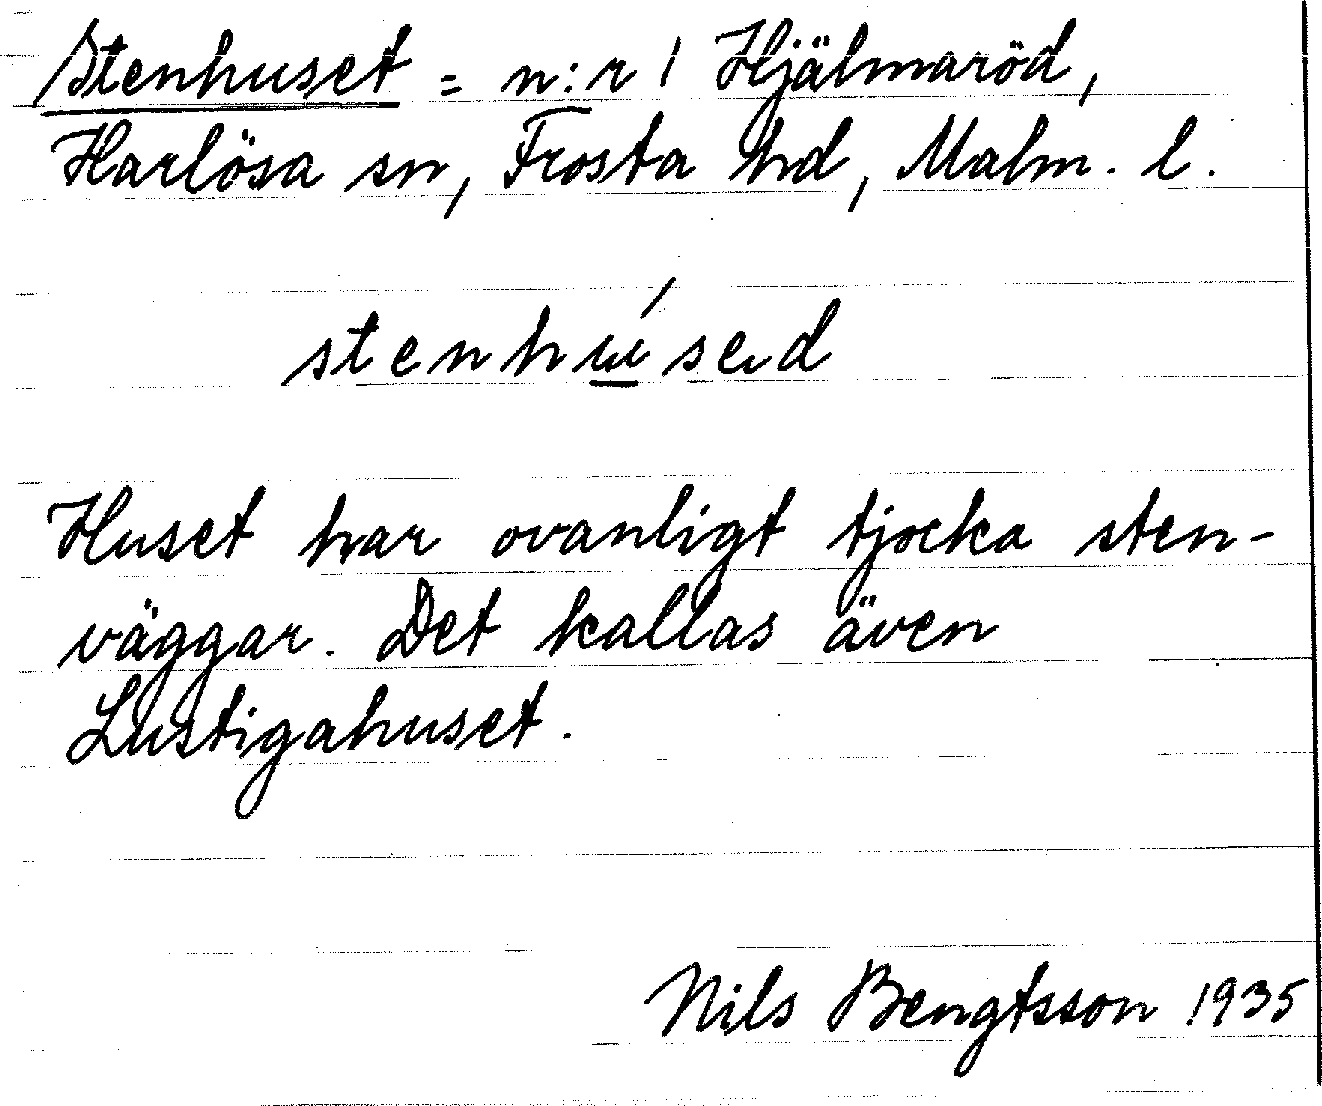 Stenhuset = n:r 1 Hjälmaröd,
Harlösa sn, Frosta hd, Malm. l.
stenhúsed
Huset har ovanligt tjocka sten-
väggar. Det kallas även
Lustigahuset.
Nils Bengtsson 1935